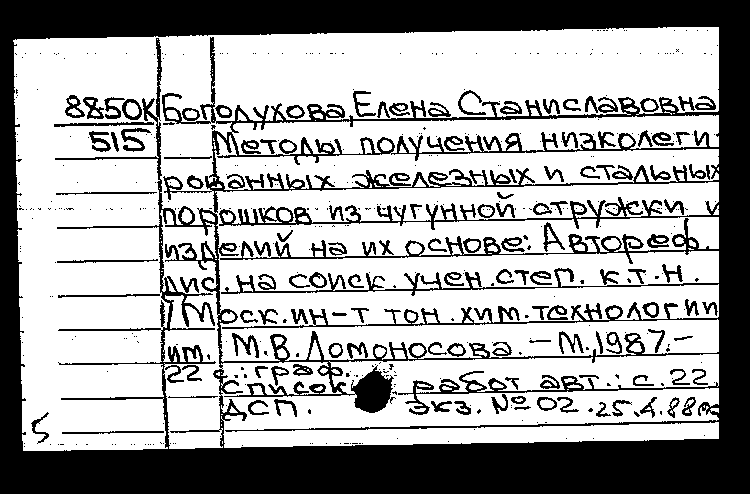 8850К Богодухова, Елена Станиславовна
515 Методы получения низколеги-
рованных железных и стальных
порошков из чугунной стружки и
изделий на их основе: Автореф.
дис. на соиск. учен. степ. к.т.н.
/ Моск. ин-т тон. хим. технологии
им. М.В. Ломоносова. – М., 1987. –
22 с.: граф.
Список работ авт.: с. 22.
ДСП. Экз. № 02. 25.4.88
5